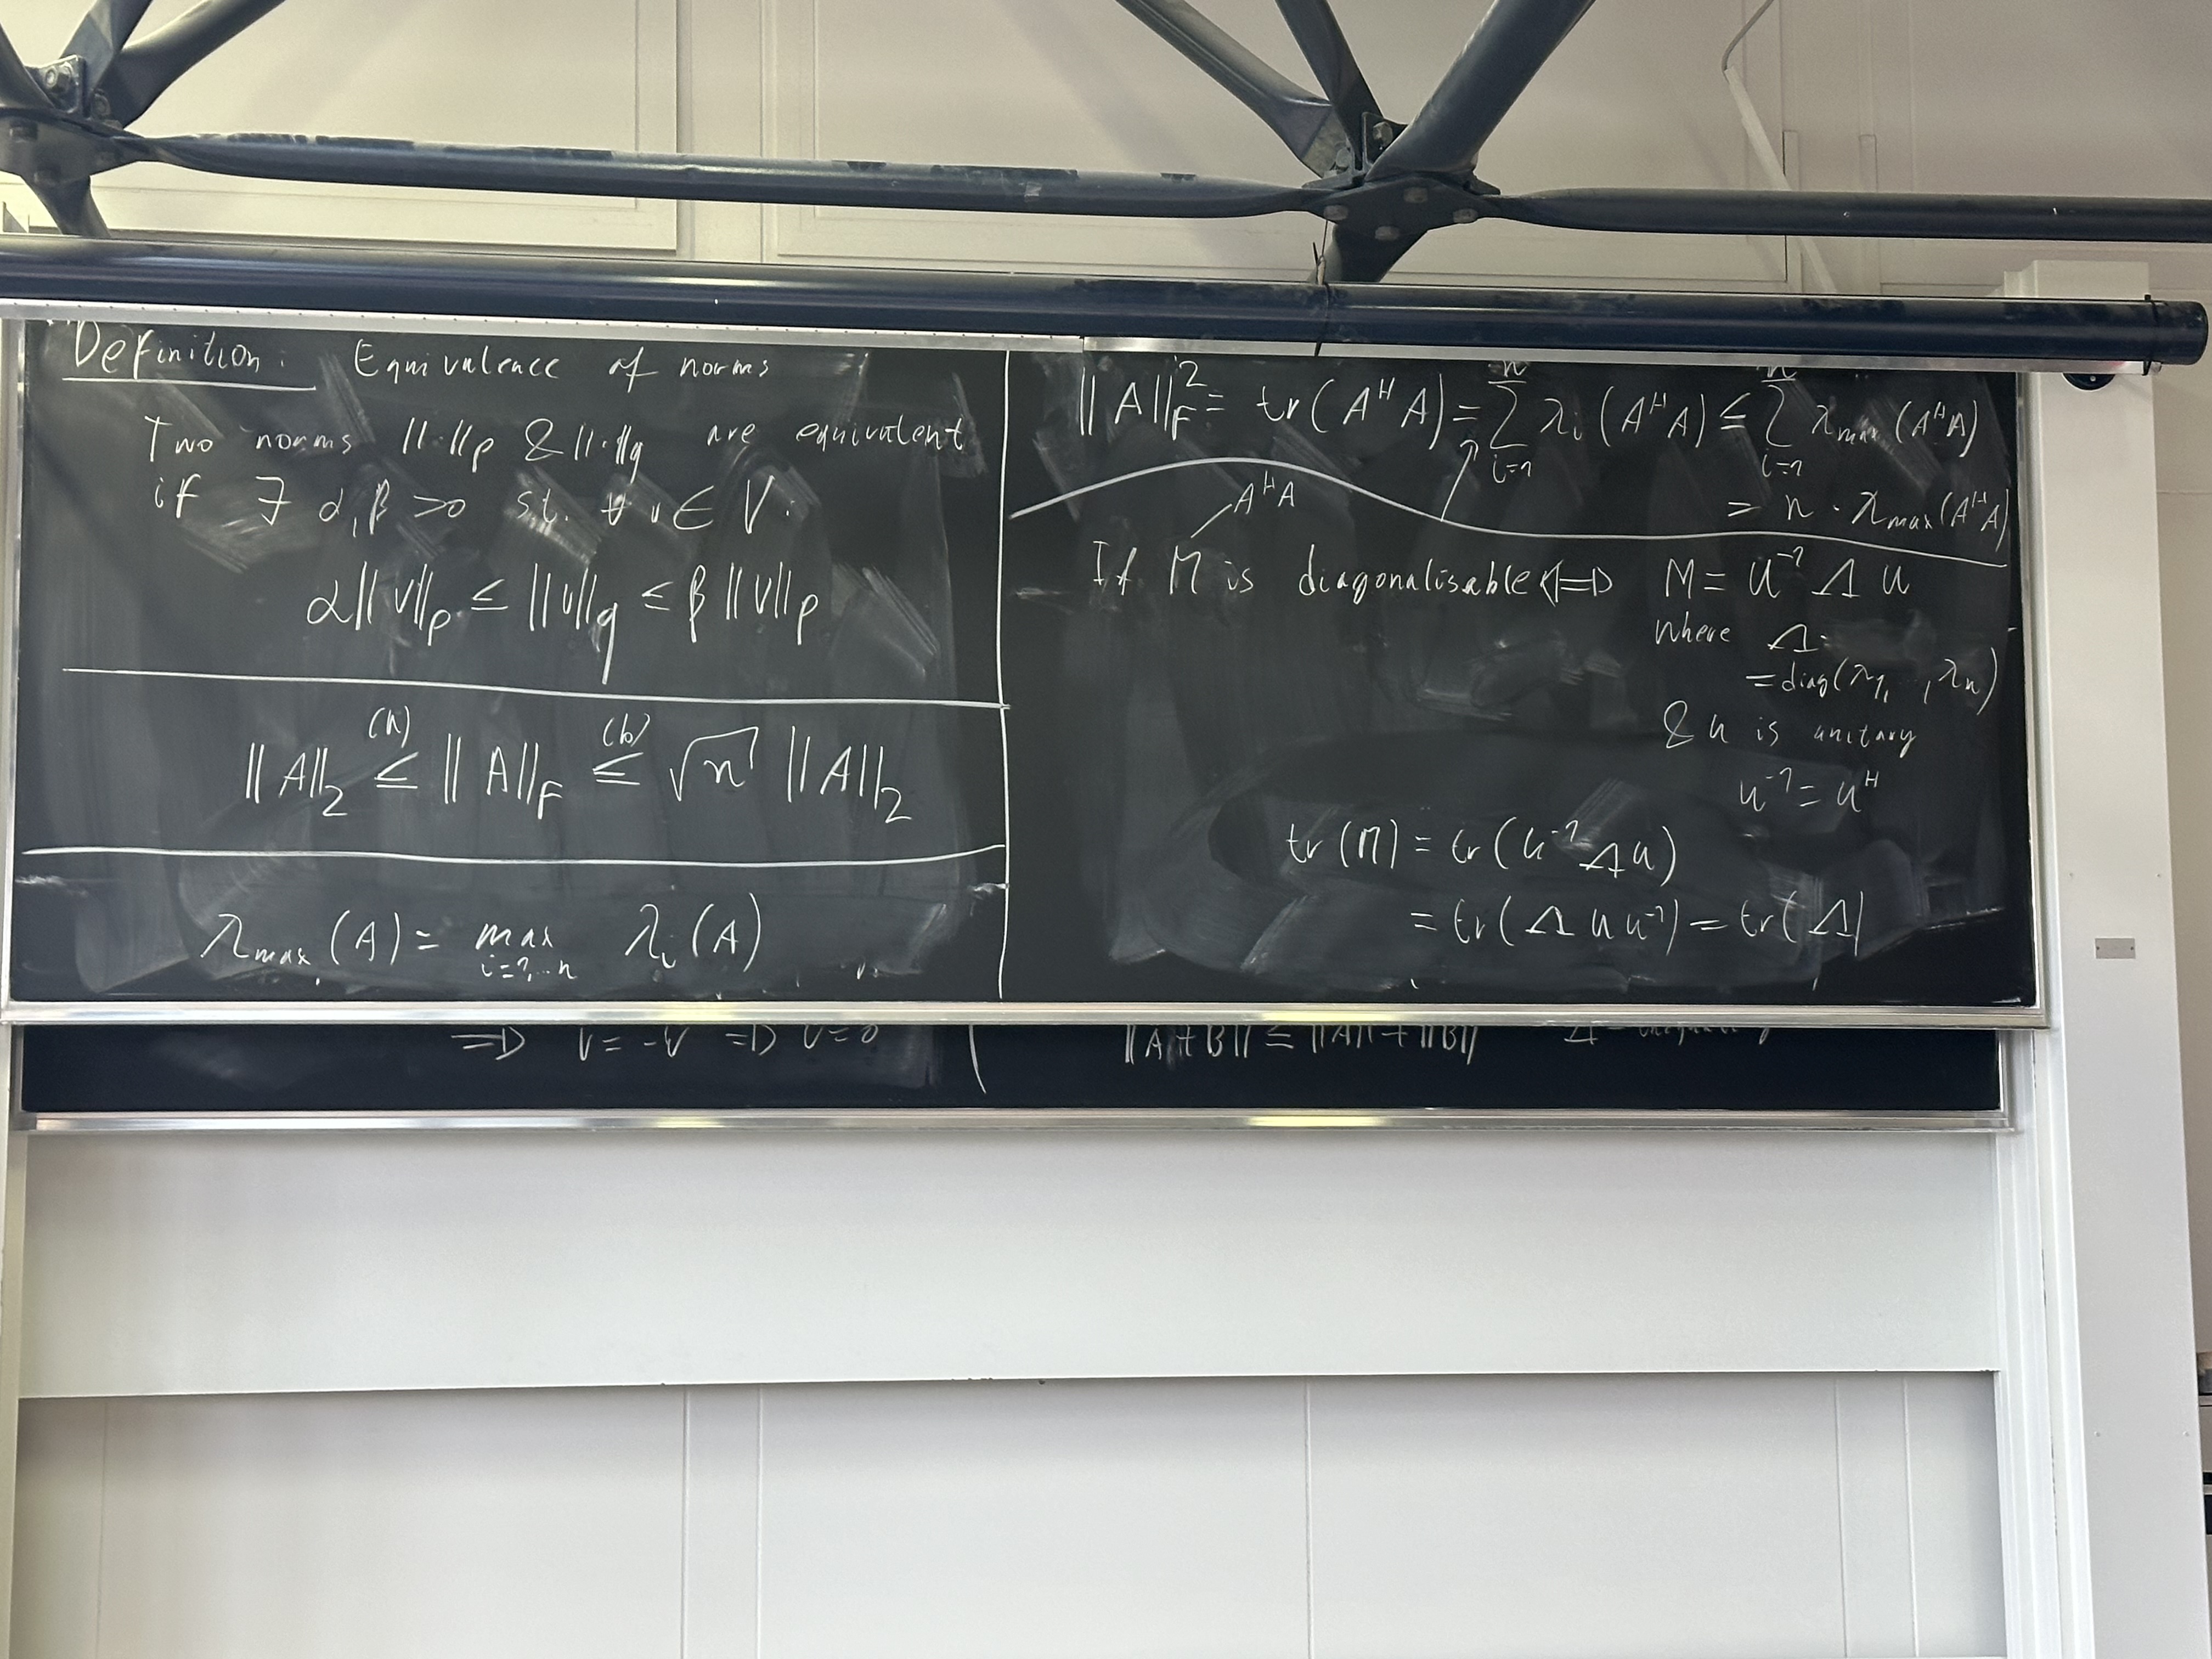 Definition: Equivalence of norms
Two norms ||·||p & ||·||q are equivalent
if ∃ α,β >0 s.t. ∀ v ∈ V:
α||v||p ≤ ||v||q ≤ β ||v||p
(a) (b)
||A||₂ ≤ ||A||F ≤ √n ||A||₂
λmax (A) = max λi (A)
i=1,...n
||A||F² = tr(AᴴA) = ∑ᵢ₌₁ⁿ λi (AᴴA) ≤ ∑ᵢ₌₁ⁿ λmax (AᴴA)
= n · λmax (AᴴA)
AᴴA
If M is diagonalisable <=> M = U⁻¹ Λ U
where Λ
= diag(λ1, .., λn)
& U is unitary
U⁻¹ = Uᴴ
tr(M) = tr(U⁻¹ Λ U)
= tr(Λ U U⁻¹) = tr(Λ)
=> v = -v => v=0
||A+B|| ≤ ||A|| + ||B|| Δ-inequality